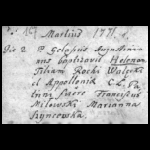 Martius 1771
Die 2 P Golofius Augustinia
nus baptizavit Helenam
filiam Rochi Wolscki
et Apollonia C. L. Pa
trini fuere Franciscus
Milewski Marianna
Szyncewka